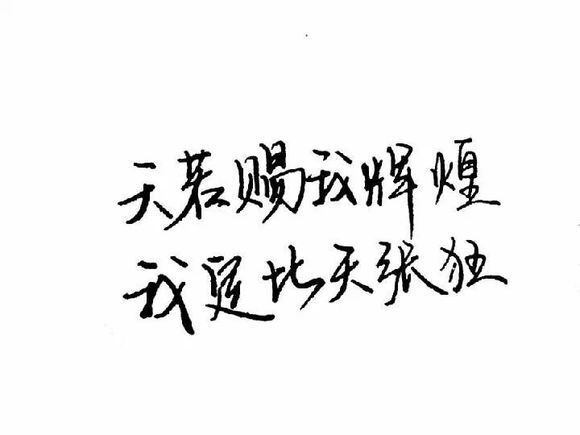 天若赐我辉煌
我定比天张狂